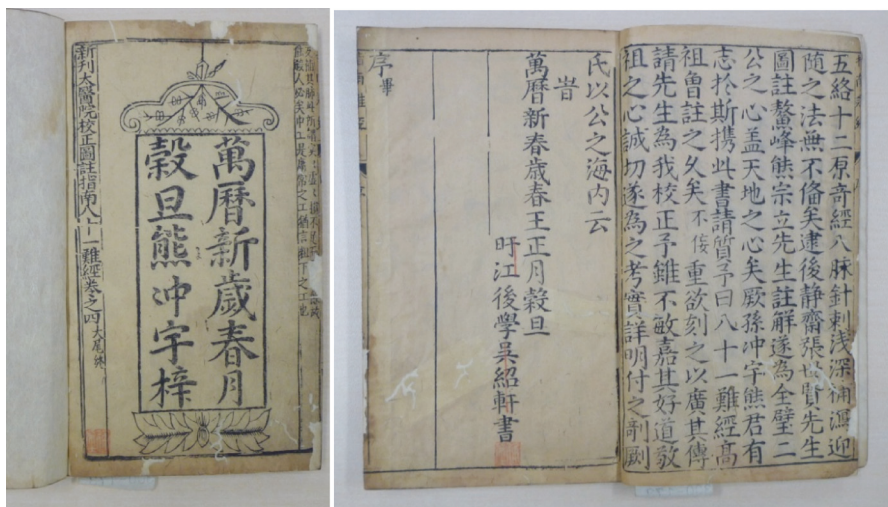 萬曆新歲春月
穀旦熊冲宇梓
新刊太醫院校正圖註指南八十一難經卷之四大尾終
五絡十二原奇經八脉針刺浅深補瀉迎
隨之法無不俻矣逮後静齋張世賢先生
圖註鰲峰熊宗立先生註解遂為全璧二
公之心盖天地之心矣厥孫冲宇熊君有
志扵斯携此書請質予曰八十一難經高
祖魯註之久矣不佞重欲刻之以廣其傳
請先生為我校正予雖不敏嘉其好道敬
祖之心誠切遂為之考實詳明付之剞劂
氏以公之海内云
旹
萬曆新春歲春王正月穀旦
旴江後學吳紹軒書
序畢